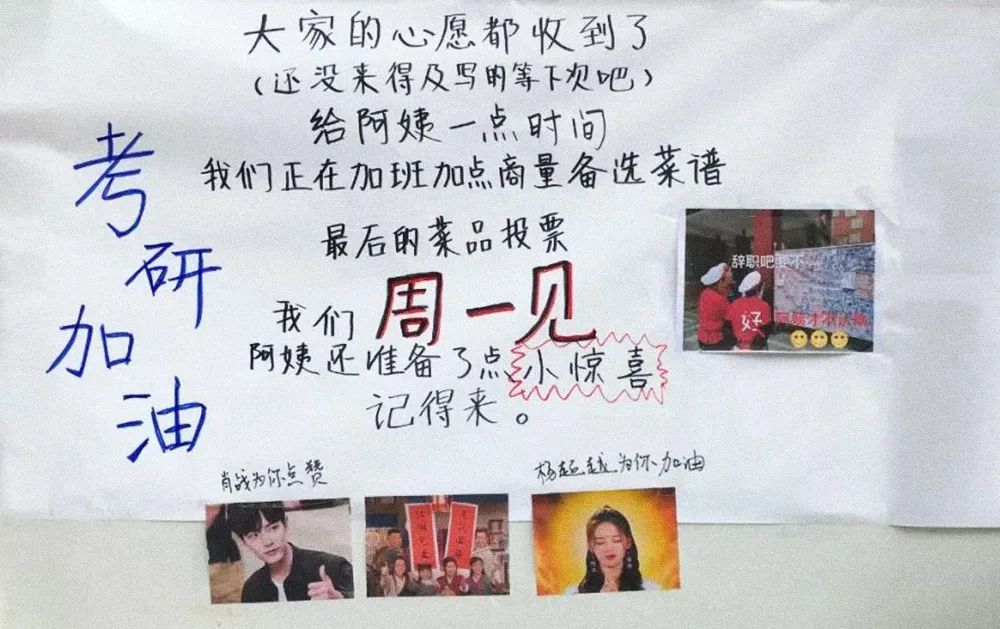 大家的心愿都收到了
(还没来得及写的等下次吧)
给阿姨一点时间
我们正在加班加点商量备选菜谱
最后的菜品投票
我们周一见
阿姨还准备了点小惊喜
记得来。
考研加油
辞职吧要不
好
肖战为你点赞
杨超越为你加油